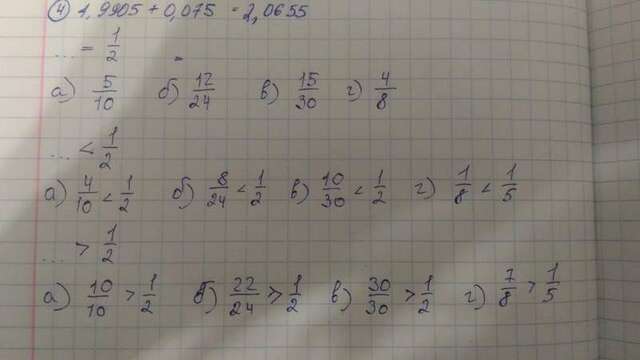 4) 1,9905 + 0,075 = 2,0655
... = 1/2 =
а) 5/10 б) 12/24 в) 15/30 г) 4/8
... < 1/2
а) 4/10 < 1/2 б) 8/24 < 1/2 в) 10/30 < 1/2 г) 1/8 < 1/5
... > 1/2
а) 10/10 > 1/2 б) 22/24 > 1/2 в) 30/30 > 1/2 г) 7/8 > 1/5